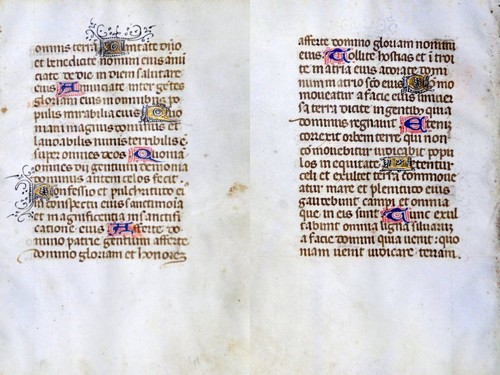 omnis terra Cantate dno
et benedicite nomini eius ann
ciate de die in diem salutare
eius Anunciate inter getes
gloriam eius in omnibus po
pulis mirabilia eius Quo
niam magnus dominus et
laudabilis nimis terribilis e
super omnes deos Quia
omnes dii gentium demonia
dominus autem celos fecit
Confessio et pulchritudo i
conspectu eius sanctimonia
et magnificentia in sanctifi
catione eius Afferte do
mino patrie gentium afferte
domino gloriam et honorez
afferte domino gloriam nomini
eius Tollite hostias et i troi
te in atria eius adorate domi
num in atrio sco eius Co mo
moueatur a facie eius uniuer
sa terra dicite in gentibus quia
dominus regnauit Eteni
correxit orbem terre qui non
comouebitur iudicabit popu
los in equitate Letentur
celi et exultet terra comoue
atur mare et plenitudo eius
gaudebunt campi et omnia
que in eis sunt Tunc exul
tabunt omnia ligna siluarum
a facie domini quia uenit quo
niam uenit iudicare terram